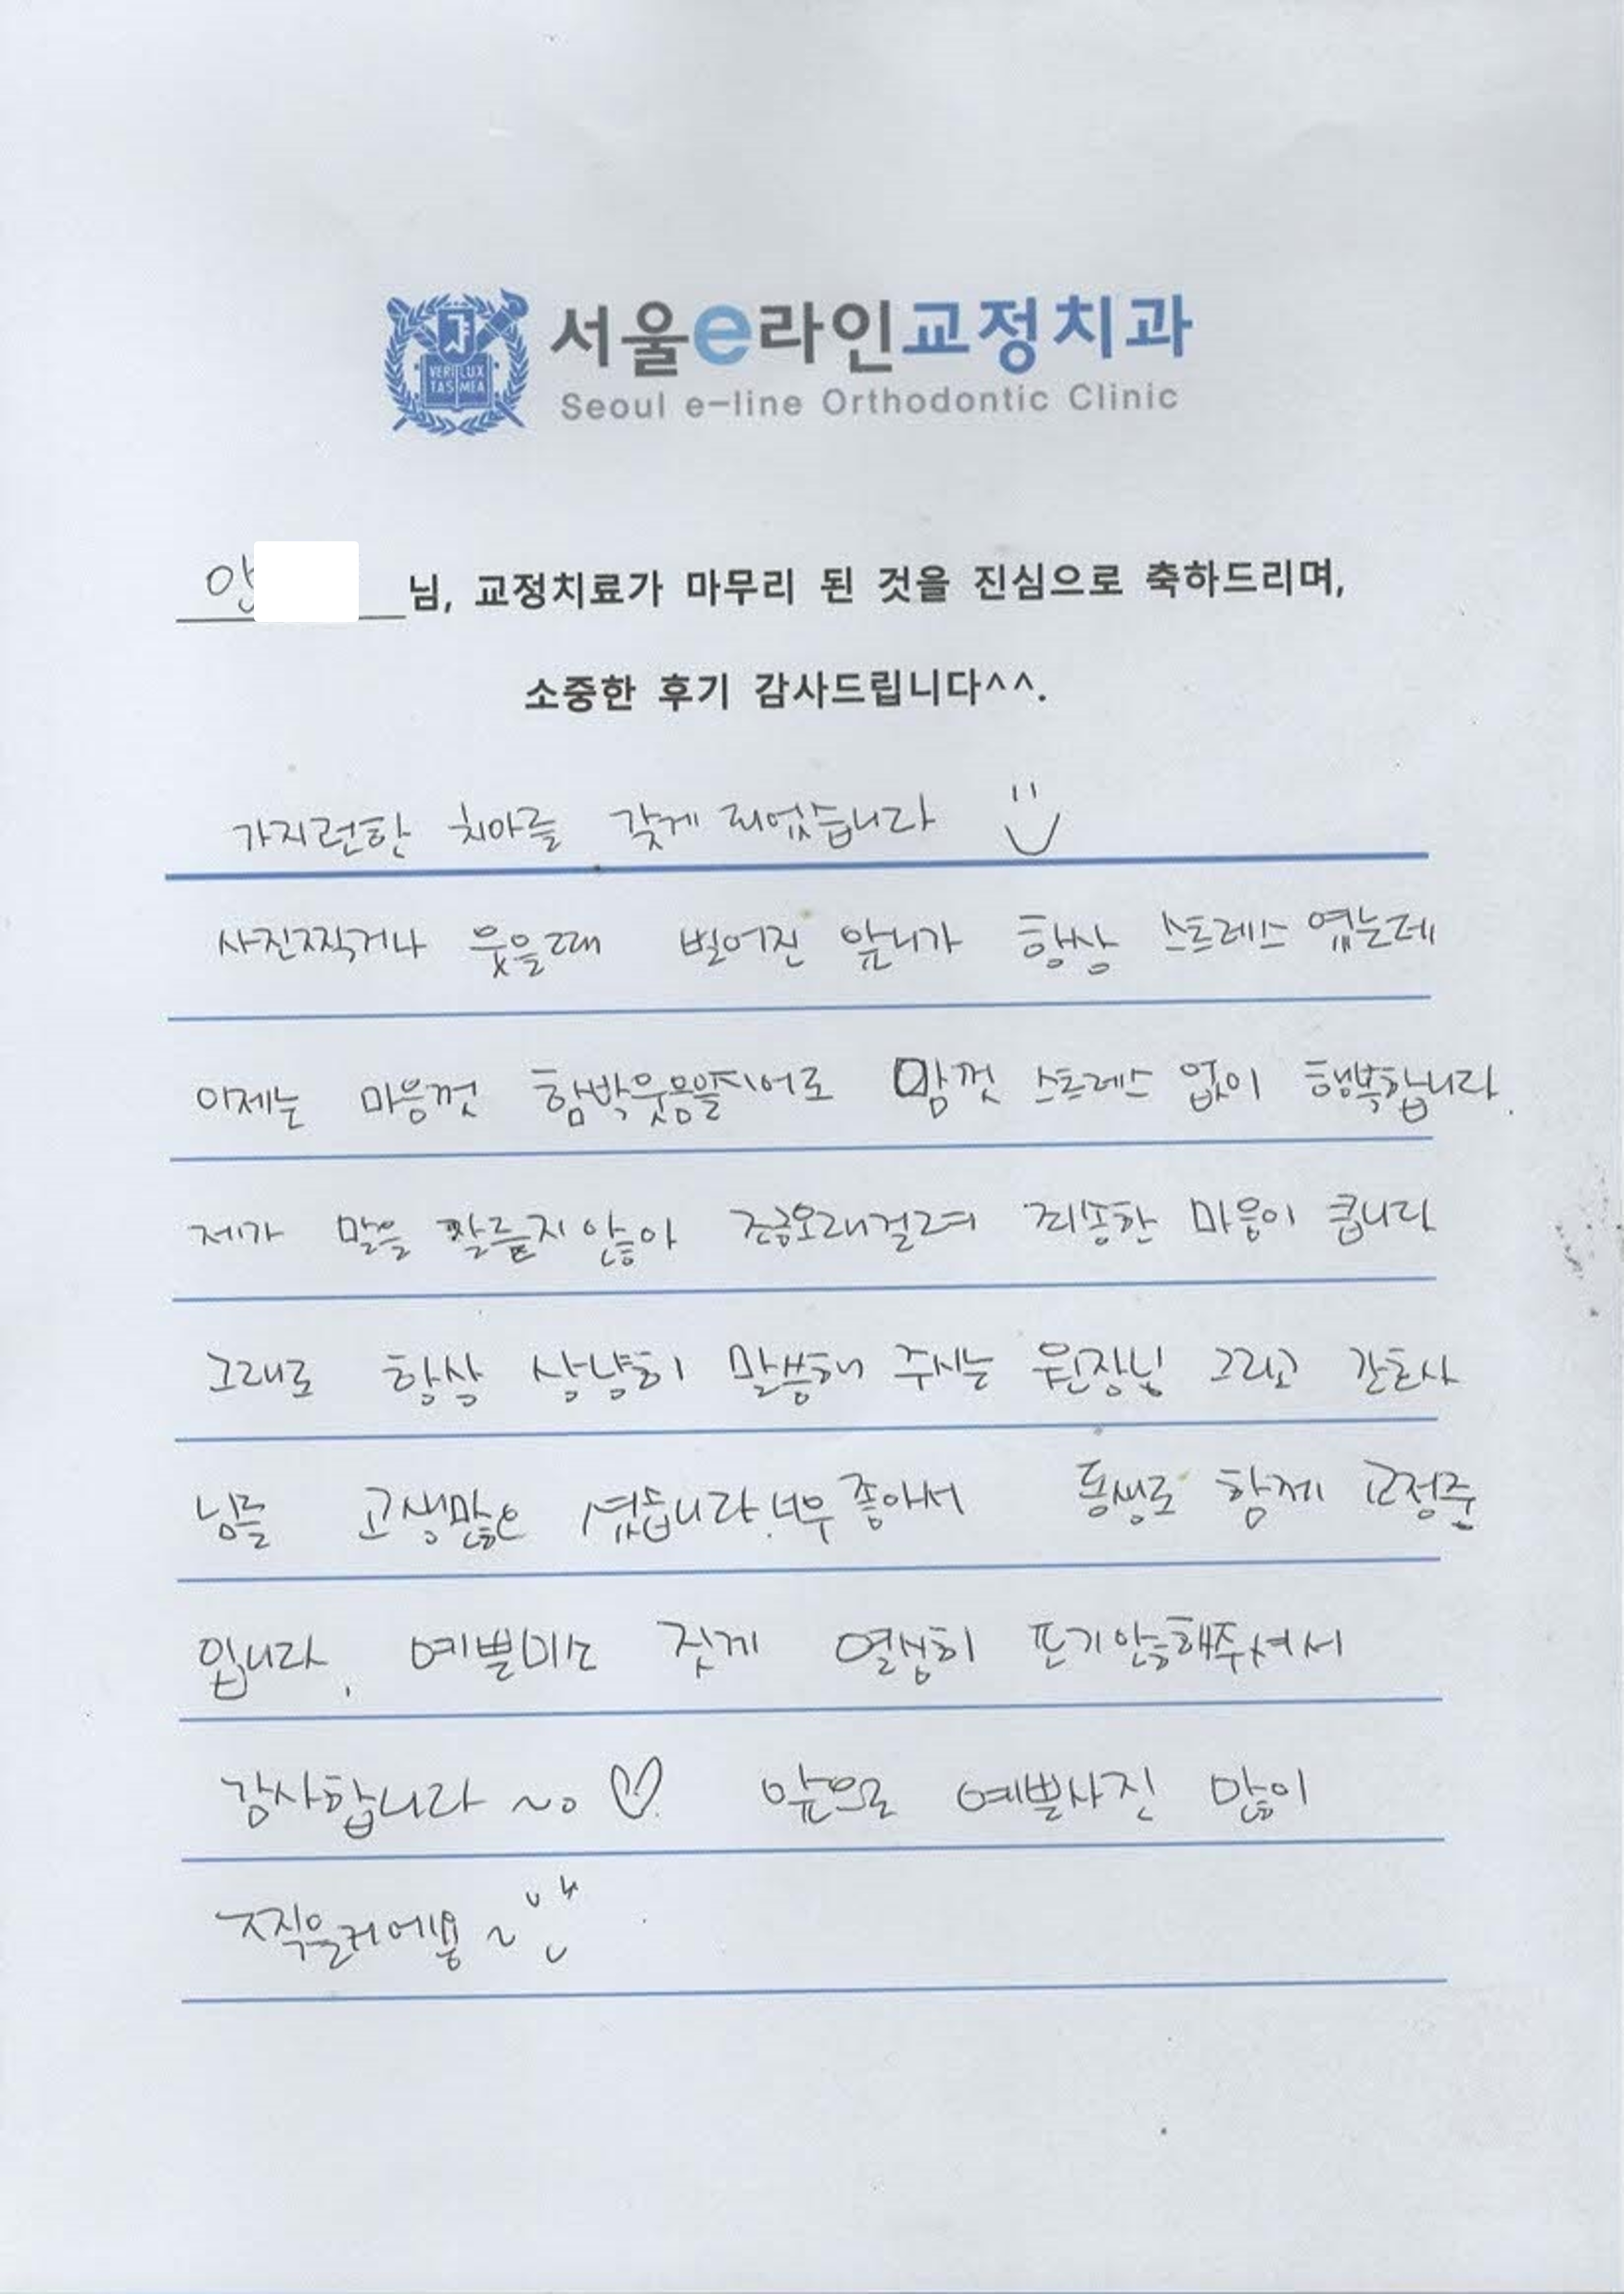 VERI LUX
TAS MEA
서울e라인교정치과
Seoul e-line Orthodontic Clinic
님, 교정치료가 마무리 된 것을 진심으로 축하드리며,
소중한 후기 감사드립니다^^.
가지런한 치아를 갖게 되었습니다
사진찍거나 웃을때 벌어진 앞니가 항상 스트레스 였는데
이제는 마음껏 함박웃음을지어도 맘껏 스트레스 없이 행복합니다.
제가 말을 잘듣지 않아 조금오래걸려 죄송한 마음이 큽니다
그래도 항상 상냥히 말씀해 주시는 원장님 그리고 간호사
님들 고생많으 셨습니다. 너무 좋아서 동생도 함께 교정중
입니다. 예쁜미소 짓게 열심히 포기안해주셔서
감사합니다 ~♡ 앞으로 예쁜사진 많이
찍을거에용~